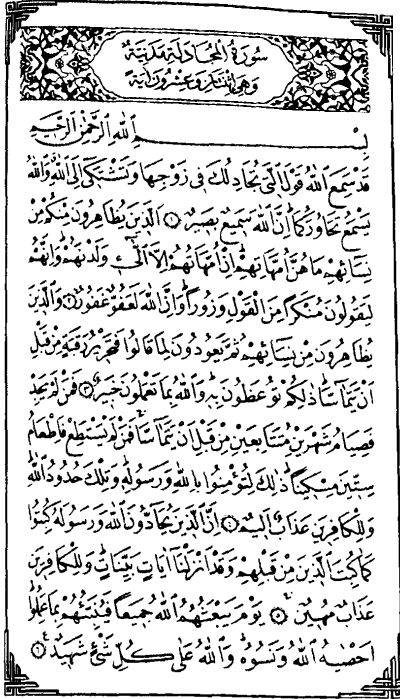 سُورَةُ الْمُجَادَلَةِ مَدَنِيَّةٌ
وَهِيَ اثْنَتَانِ وَعِشْرُونَ اٰيَةً
بِسْمِ اللّٰهِ الرَّحْمٰنِ الرَّحِيمِ
قَدْ سَمِعَ اللّٰهُ قَوْلَ الَّتِي تُجَادِلُكَ فِي زَوْجِهَا وَتَشْتَكِي اِلَى اللّٰهِ وَاللّٰهُ
يَسْمَعُ تَحَاوُرَكُمَا اِنَّ اللّٰهَ سَمِيعٌ بَصِيرٌ ١ اَلَّذِينَ يُظَاهِرُونَ مِنْكُمْ مِنْ
نِسَائِهِمْ مَا هُنَّ اُمَّهَاتِهِمْ اِنْ اُمَّهَاتُهُمْ اِلَّا الّٰٓئِ وَلَدْنَهُمْ وَاِنَّهُمْ
لَيَقُولُونَ مُنْكَرًا مِنَ الْقَوْلِ وَزُورًا وَاِنَّ اللّٰهَ لَعَفُوٌّ غَفُورٌ ٢ وَالَّذِينَ
يُظَاهِرُونَ مِنْ نِسَائِهِمْ ثُمَّ يَعُودُونَ لِمَا قَالُوا فَتَحْرِيرُ رَقَبَةٍ مِنْ قَبْلِ
اَنْ يَتَمَاسَّا ذٰلِكُمْ تُوعَظُونَ بِهِ وَاللّٰهُ بِمَا تَعْمَلُونَ خَبِيرٌ ٣ فَمَنْ لَمْ يَجِدْ
فَصِيَامُ شَهْرَيْنِ مُتَتَابِعَيْنِ مِنْ قَبْلِ اَنْ يَتَمَاسَّا فَمَنْ لَمْ يَسْتَطِعْ فَاِطْعَامُ
سِتِّينَ مِسْكِينًا ذٰلِكَ لِتُؤْمِنُوا بِاللّٰهِ وَرَسُولِهِ وَتِلْكَ حُدُودُ اللّٰهِ
وَلِلْكَافِرِينَ عَذَابٌ اَلِيمٌ ٤ اِنَّ الَّذِينَ يُحَادُّونَ اللّٰهَ وَرَسُولَهُ كُبِتُوا
كَمَا كُبِتَ الَّذِينَ مِنْ قَبْلِهِمْ وَقَدْ اَنْزَلْنَا اٰيَاتٍ بَيِّنَاتٍ وَلِلْكَافِرِينَ
عَذَابٌ مُهِينٌ ٥ يَوْمَ يَبْعَثُهُمُ اللّٰهُ جَمِيعًا فَيُنَبِّئُهُمْ بِمَا عَمِلُوا
اَحْصٰيهُ اللّٰهُ وَنَسُوهُ وَاللّٰهُ عَلٰى كُلِّ شَيْءٍ شَهِيدٌ ٦